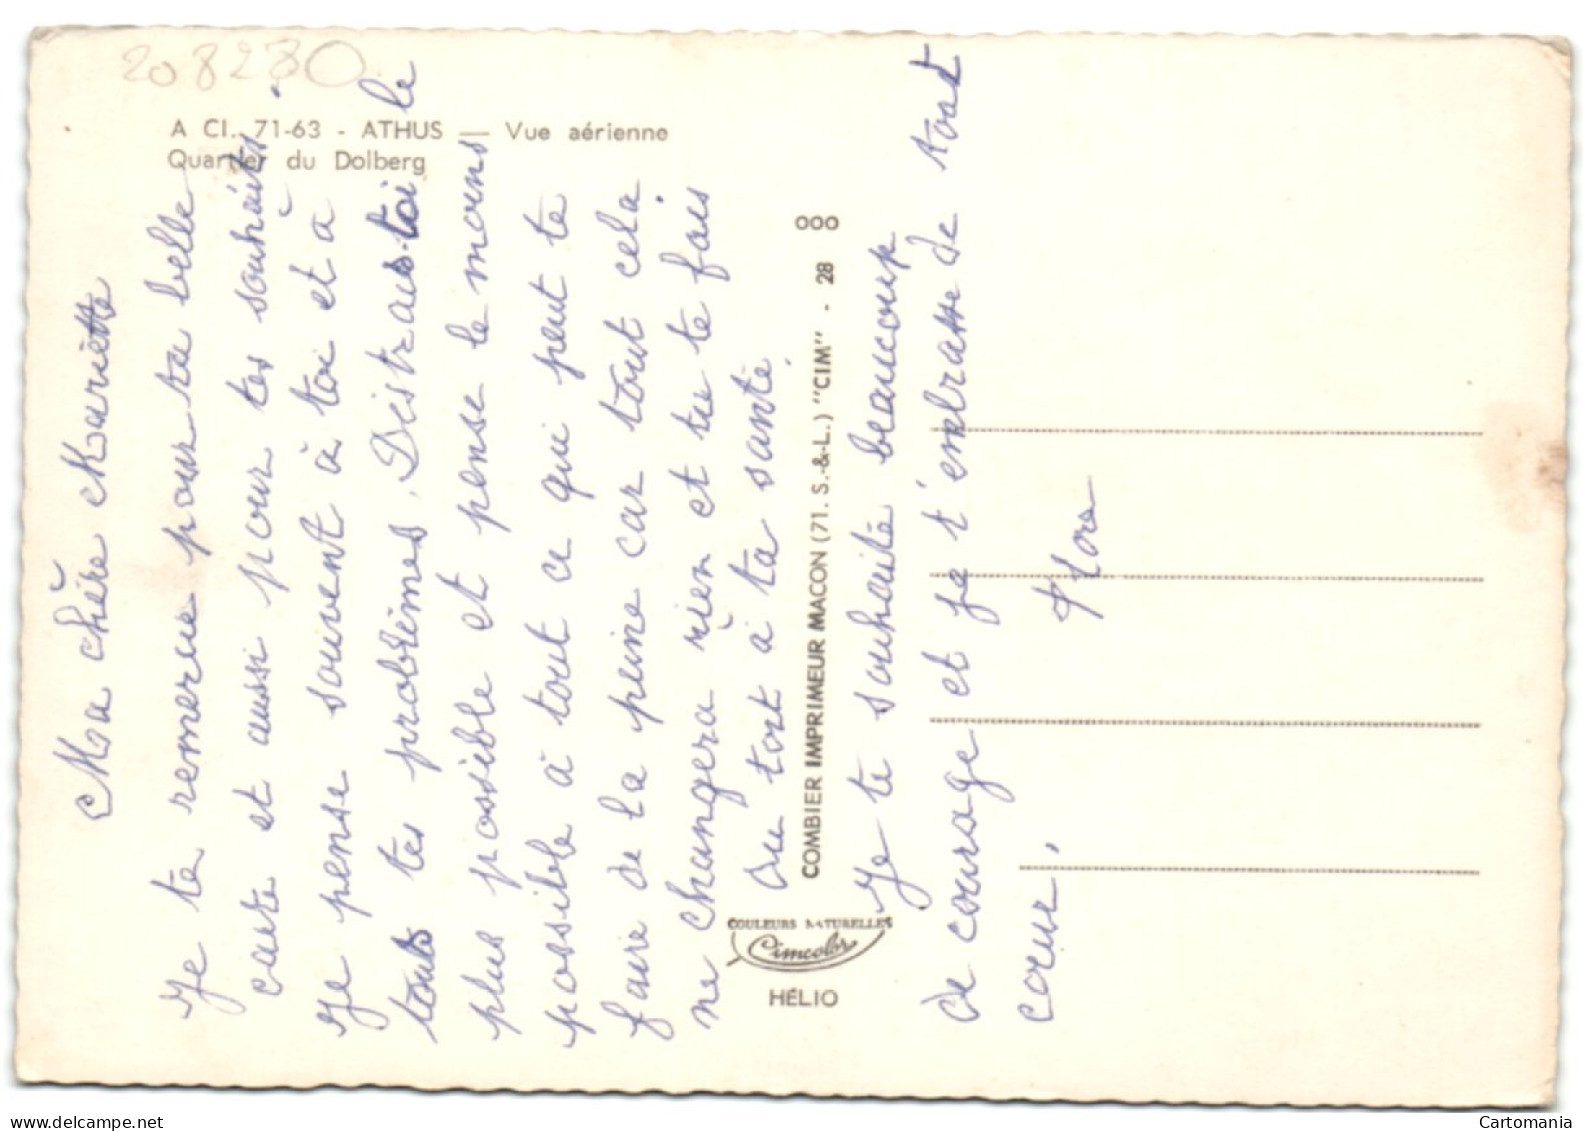 208280
A CI. 71-63 - ATHUS — Vue aérienne
Quartier du Dolberg
Ma chère Mariette
Je te remercie pour ta belle
carte et aussi pour tes souhaits.
Je pense souvent à toi et à
touts tes problèmes. Distrais-toi le
plus possible et pense le moins
possible à tout ce qui peut te
faire de la peine car tout cela
ne changera rien et tu te fais
du tort à ta santé.
COMBIER IMPRIMEUR MACON (71. S.-&-L.) "CIM" - 28
ooo
COULEURS NATURELLES
Cimcolor
HÉLIO
Je te souhaite beaucoup
de courage et je t'embrasse de tout
coeur.
Flore
Cartomania